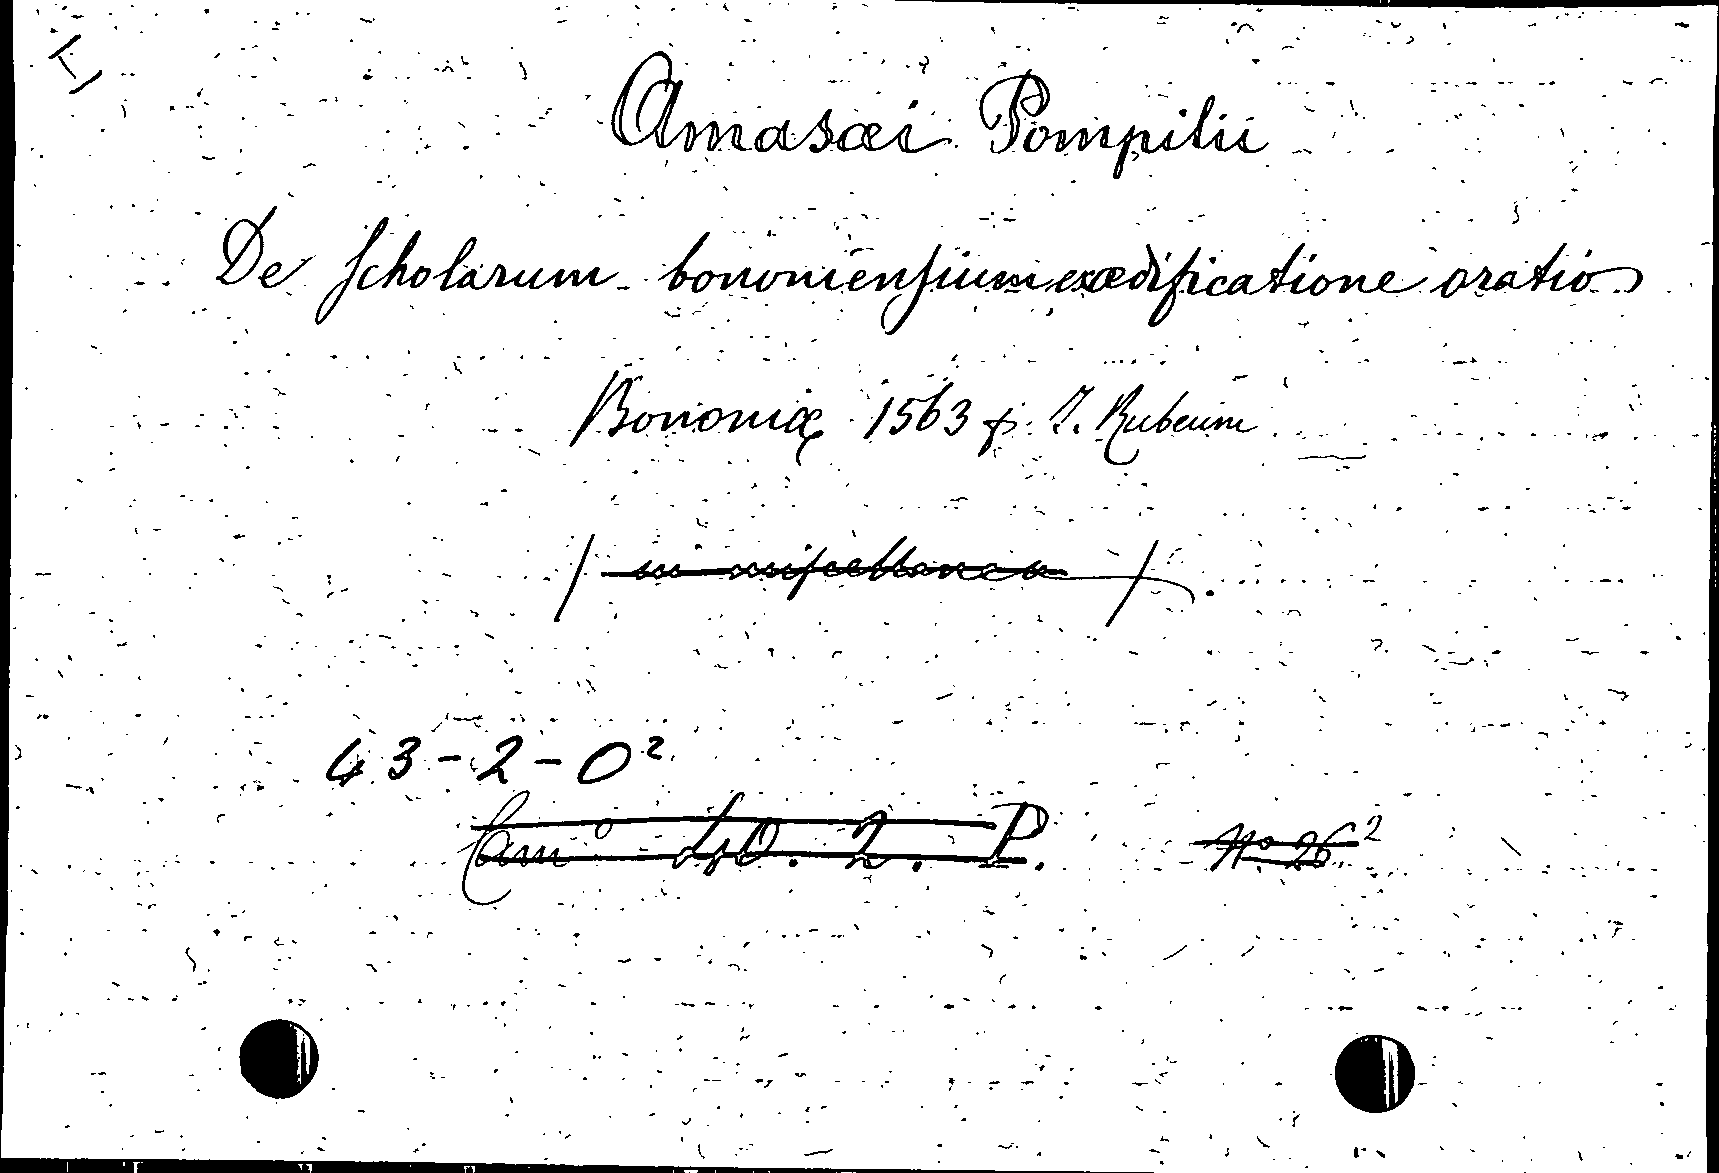 Amasæi Pompilii
De scholarum bononiensium exædificatione oratio
Bononiæ 1563 p. J. Rubeum
/ in miscellanea /.
43-2-O²
Cam° 40. 2. P. N° 26²